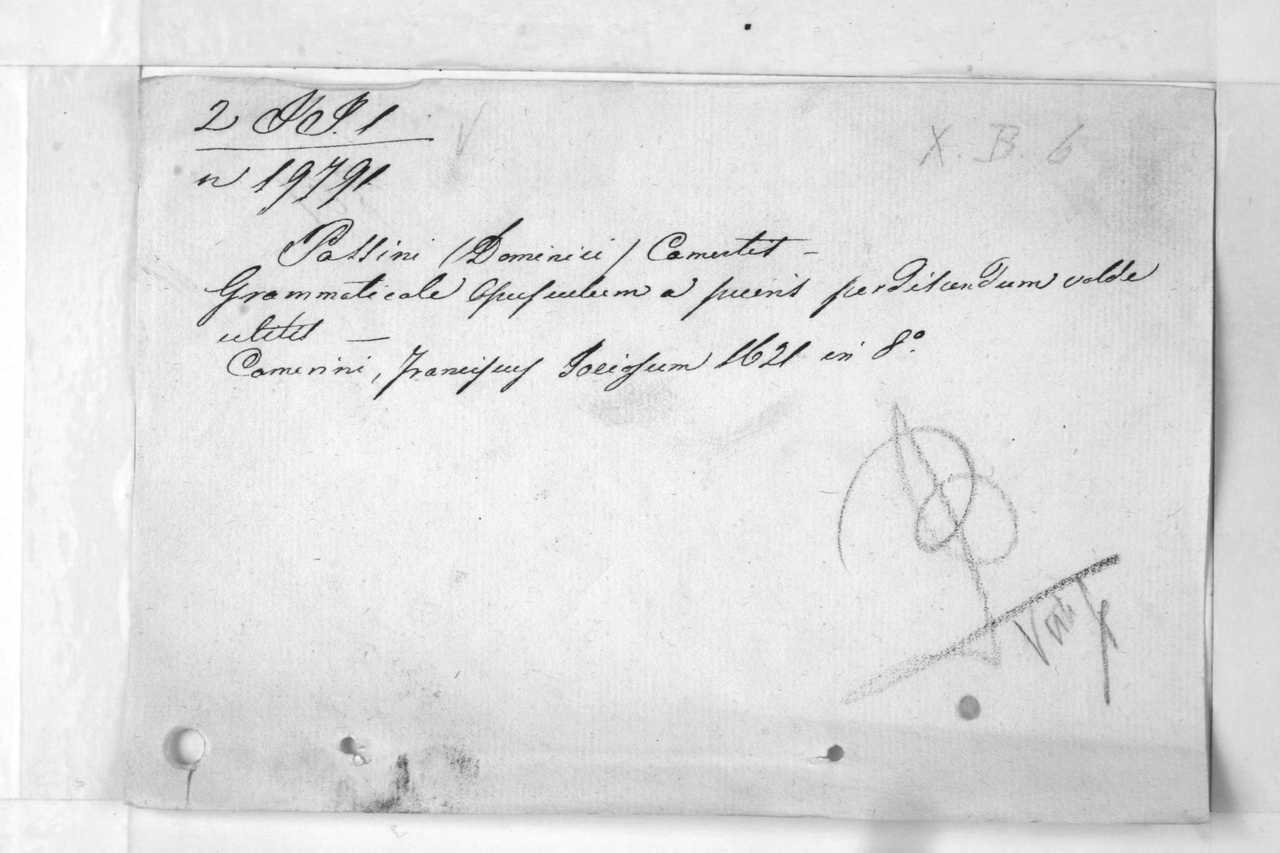 2 PP. 1
X. B. 6
n 19791
Passini (Dominici) Camertis –
Grammaticale Opusculum a pueris perdiscendum valde
utilis —
Camerini, Franciscus Joeiosum 1621 in 8.º